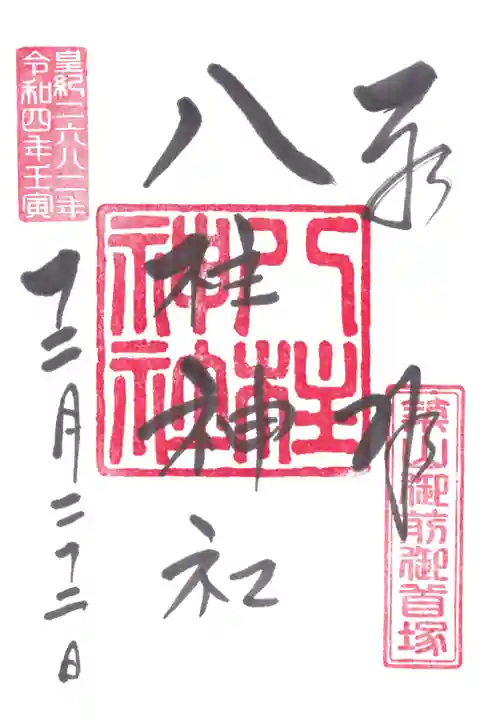 奉拝
築山御前御首塚
八柱神社
八柱神社
皇紀二六八二年
令和四年壬寅
十二月二十二日